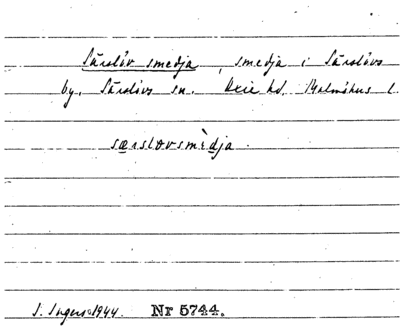 Särslöv smedja, smedja i Särslövs
by, Särslövs sn. Oxie hd. Malmöhus l.
særslovsmèdja.
I. Ingers 1944. Nr 5744.